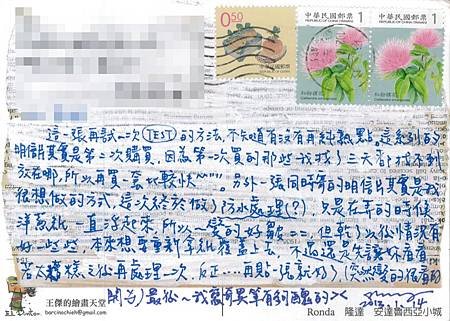 0.50
中華民國郵票
REPUBLIC OF CHINA (TAIWAN)
1
中華民國郵票
1
這一張再試一次(TEST)的方法,不知道有沒有再純熟點。這系列的
明信片其實是第二次購買,因為第一次買的那些我找了三天都找不到
放在哪,所以再買一套比較快~""。另外一張同時寄的明信片其實是我
很想做的方式,這次終於做了防水處理(?),只是在弄的時候
洋蔥紙一直浮起來,所以一整的好皺==,但乾了以後情況有
好一些些,本來想要重新拿紙覆蓋上去,不過還是先讓妳看看
若太糟糕之後再處理一次,反正…再貼一張就好了
閃名)最後~我寫奇異筆有夠醜的><
2013.1.14
王傑的繪畫天堂
barcinochieh@gmail.com
Ronda 隆達 安達魯西亞小城